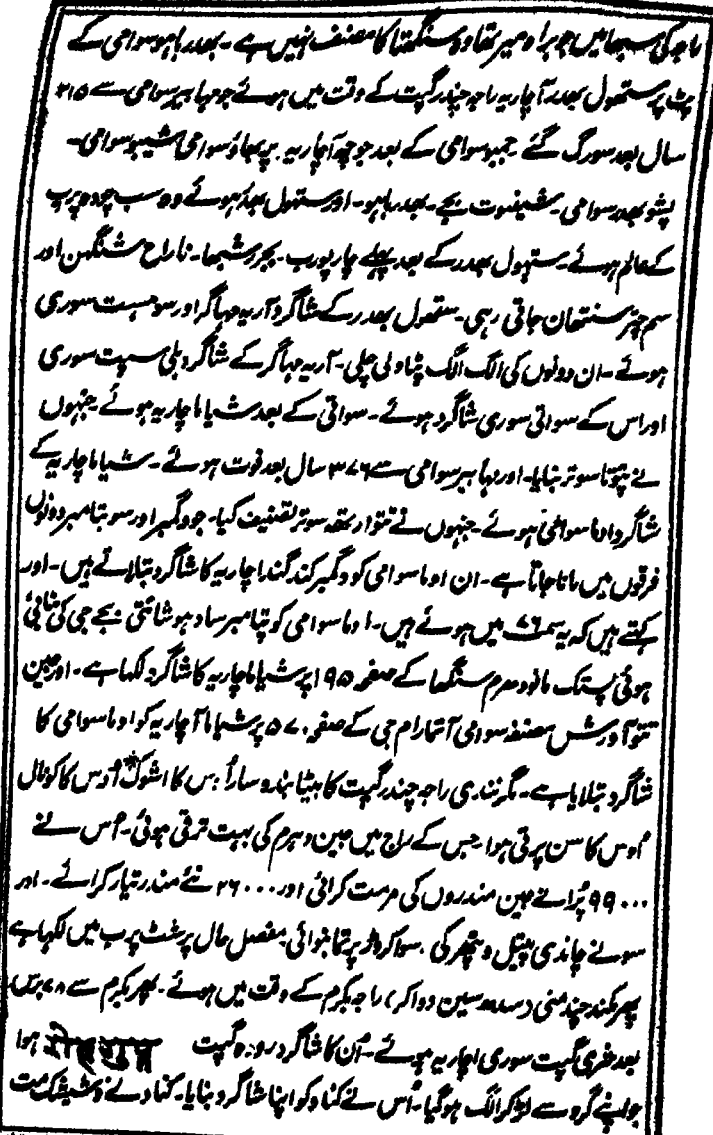 راجہ کی سبھا میں جو براہ میر تھا وہ سنگھتا کا مصنف نہیں ہے۔ بھدر باہو سوامی کے
پٹ پر ستھول بھدر آچاریہ راجہ چندر گپت کے وقت میں ہوئے جو مہابیر سوامی سے ۲۱۵
سال بعد سورگ گئے جمبو سوامی کے بعد جو چھ آچاریہ۔ پربھاؤ سوامی شیبو سوامی۔
یشو بھدر سوامی۔ بجے۔ بھدر باہو۔ اور ستھول بھدر ہوئے وہ سب چودہ پرب
کے عالم ہوئے۔ ستہول بھدر کے بعد پہلے چار پورب۔ بجر رشبھا۔ ناراح سنگہن اور
سم چتر سنتھان جاتی رہی۔ ستھول بھدر کے شاگرد آریہ مہاگر اور سوہست سوری
ہوئے۔ ان دونوں کی الگ الگ پٹاولی چلی۔ آریہ مہاگر کے شاگرد بلی سہت سوری
اور اس کے سواتی سوری شاگرد ہوئے۔ سواتی کے بعد شیاما چاریہ ہوئے جنہوں
نے پنوّنا سوتر بنایا۔ اور مہابیر سوامی سے ۳۷۶ سال بعد فوت ہوئے۔ شیاما چاریہ کے
شاگرد اوما سوامی ہوئے۔ جنہوں نے تتوارتھ سوتر تصنیف کیا۔ جو دگمبر اور سوتیامبر دونوں
فرقوں میں مانا جاتا ہے۔ ان اوما سوامی کو دگمبر کند کند اچاریہ کا شاگرد بتلاتے ہیں۔ اور
کہتے ہیں کہ یہ سمت ۷۶ میں ہوئے ہیں۔ اوما سوامی کو پتیامبر سادہو شانتی بجے جی کی بنائی
ہوئی پستک مانو دھرم سنگھا کے صفحہ ۱۹۵ پر شیاما چاریہ کا شاگرد لکھا ہے۔ اور جین
تتو آدرش مصنفہ سوامی آتما رام جی کے صفحہ ۵۷۰ پر شیاما آچاریہ کو اوما سوامی کا
شاگرد بتلایا ہے۔ مگر نندی راجہ چندر گپت کا بیٹا بندوسار اُس کا اشوک اُوس کا کونال
اُوس کا سن پرتی ہوا جس کے راج میں جین دہرم کی بہت ترقی ہوئی۔ اُس نے
۹۹۰۰۰ پُرانے جین مندروں کی مرمت کرائی اور ۲۶۰۰۰ نئے مندر تیار کرائے۔ اور
سونے چاندی پیتل و پتھر کی سوا کروڑ پرتما بنوائی۔ مفصل حال پرشٹ پرب میں لکہا ہے
پھر مکند چند منی (سدھ سین دواکر) راجہ بکرم کے وقت میں ہوئے۔ پھر بکرم سے ۷۸ برس
بعد شری گپت سوری اچاریہ ہوئے۔ اُن کا شاگرد روہ گپت ہوا
جو اپنے گرو سے لڑ کر الگ ہو گیا۔ اُس نے کناد کو اپنا شاگرد بنایا۔ کناد نے وشیشک مت